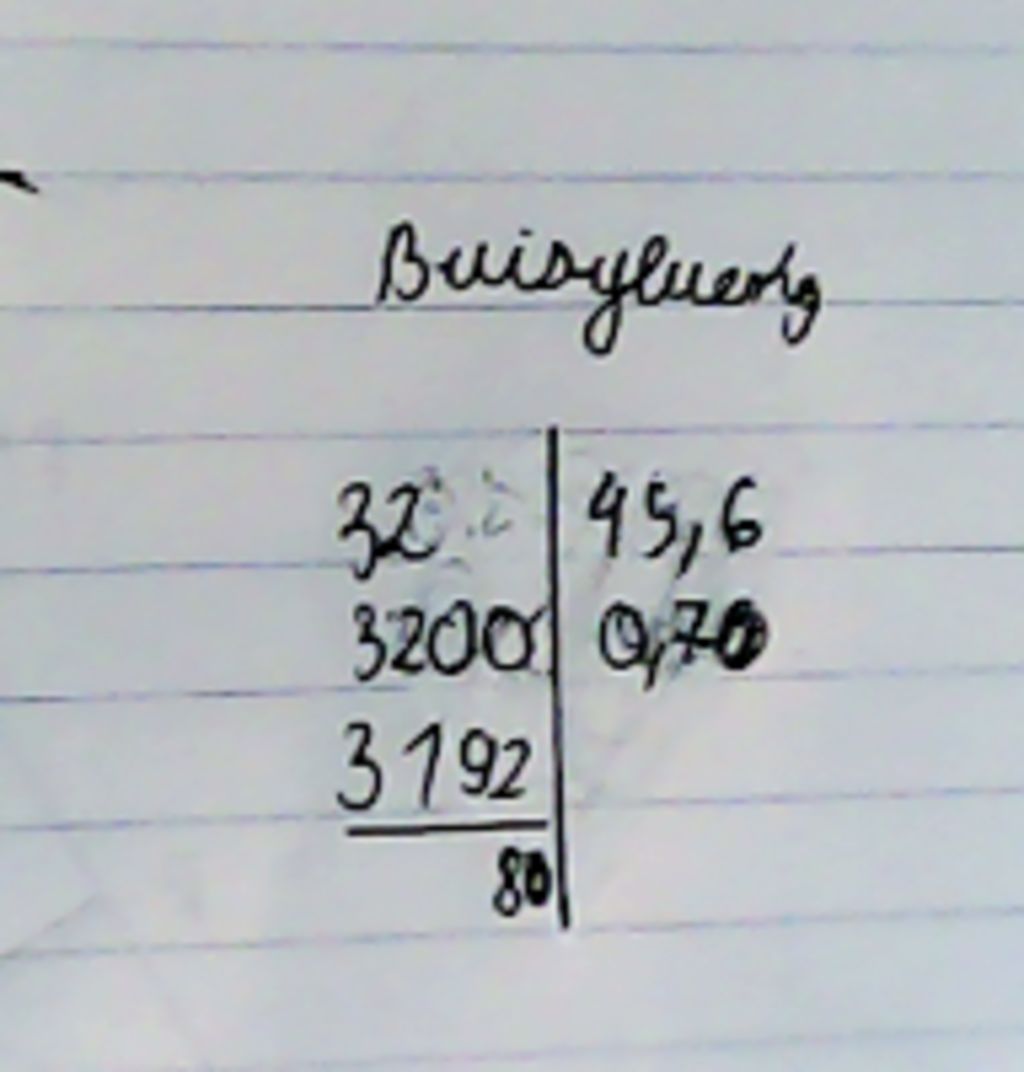 32 45,6
3200 0,70
3192
80